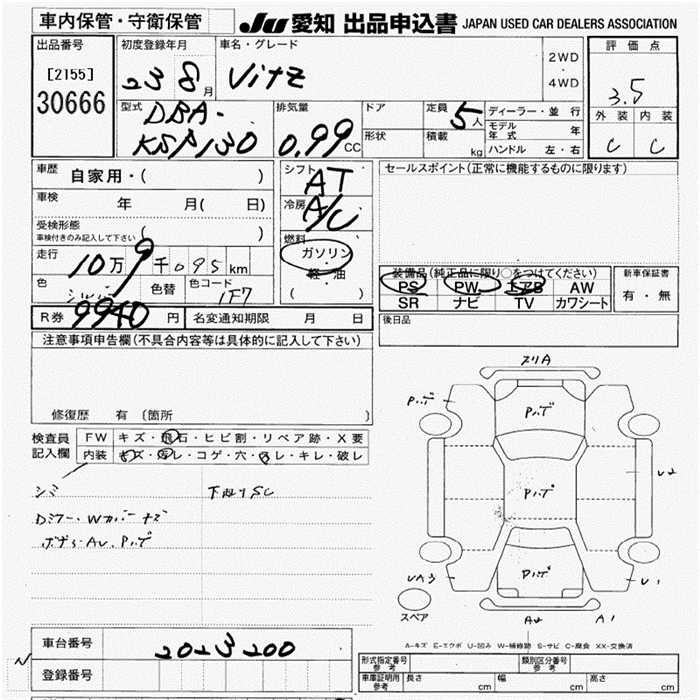 車内保管・守衛保管
JU 愛知 出品申込書 JAPAN USED CAR DEALERS ASSOCIATION
出品番号
[2155]
30666
初度登録年月
23 8月
車名・グレード
Vitz
2WD
・
4WD
評価点
3.5
外装 内装
C C
型式
DBA-
KSP130
排気量
0.99 CC
ドア
形状
定員
5人
積載
kg
ディーラー・並行
モデル年式 年
ハンドル 左・右
車歴
自家用・( )
車検
年 月( 日)
受検形態
車検付きのみ記入して下さい
( )
走行
10万9千095km
色
シルバー
色替
色コード
1F7
R券 9940円
名変通知期限 月 日
シフト
AT
冷房
A/C
燃料
ガソリン
・
軽・油
( )
セールスポイント(正常に機能するものに限ります)
装備品(純正品に限り○をつけてください)
PS PW エアB AW
SR ナビ TV カワシート
新車保証書
有・無
後日品
注意事項申告欄(不具合内容等は具体的に記入して下さい)
修復歴 有〔箇所 〕
検査員
記入欄
FW キズ・飛石・ヒビ割・リペア跡・X要
内装 キズ・汚レ・コゲ・穴・スレ・キレ・破レ
シミ
下廻りSC
Dミラー・Wカバーキズ
スリA
Pハゲ
Pハゲ
Pハゲ
Pハゲ
U2
UA3
U1
A2
A1
スペア
A-キズ E-エクボ U-凹み W-補修跡 S-サビ C-腐食 XX-交換済
車台番号 2023200
登録番号
形式指定番号
参考
類別区分番号
参考
車庫証明用
参考
長さ cm 幅 cm 高さ cm